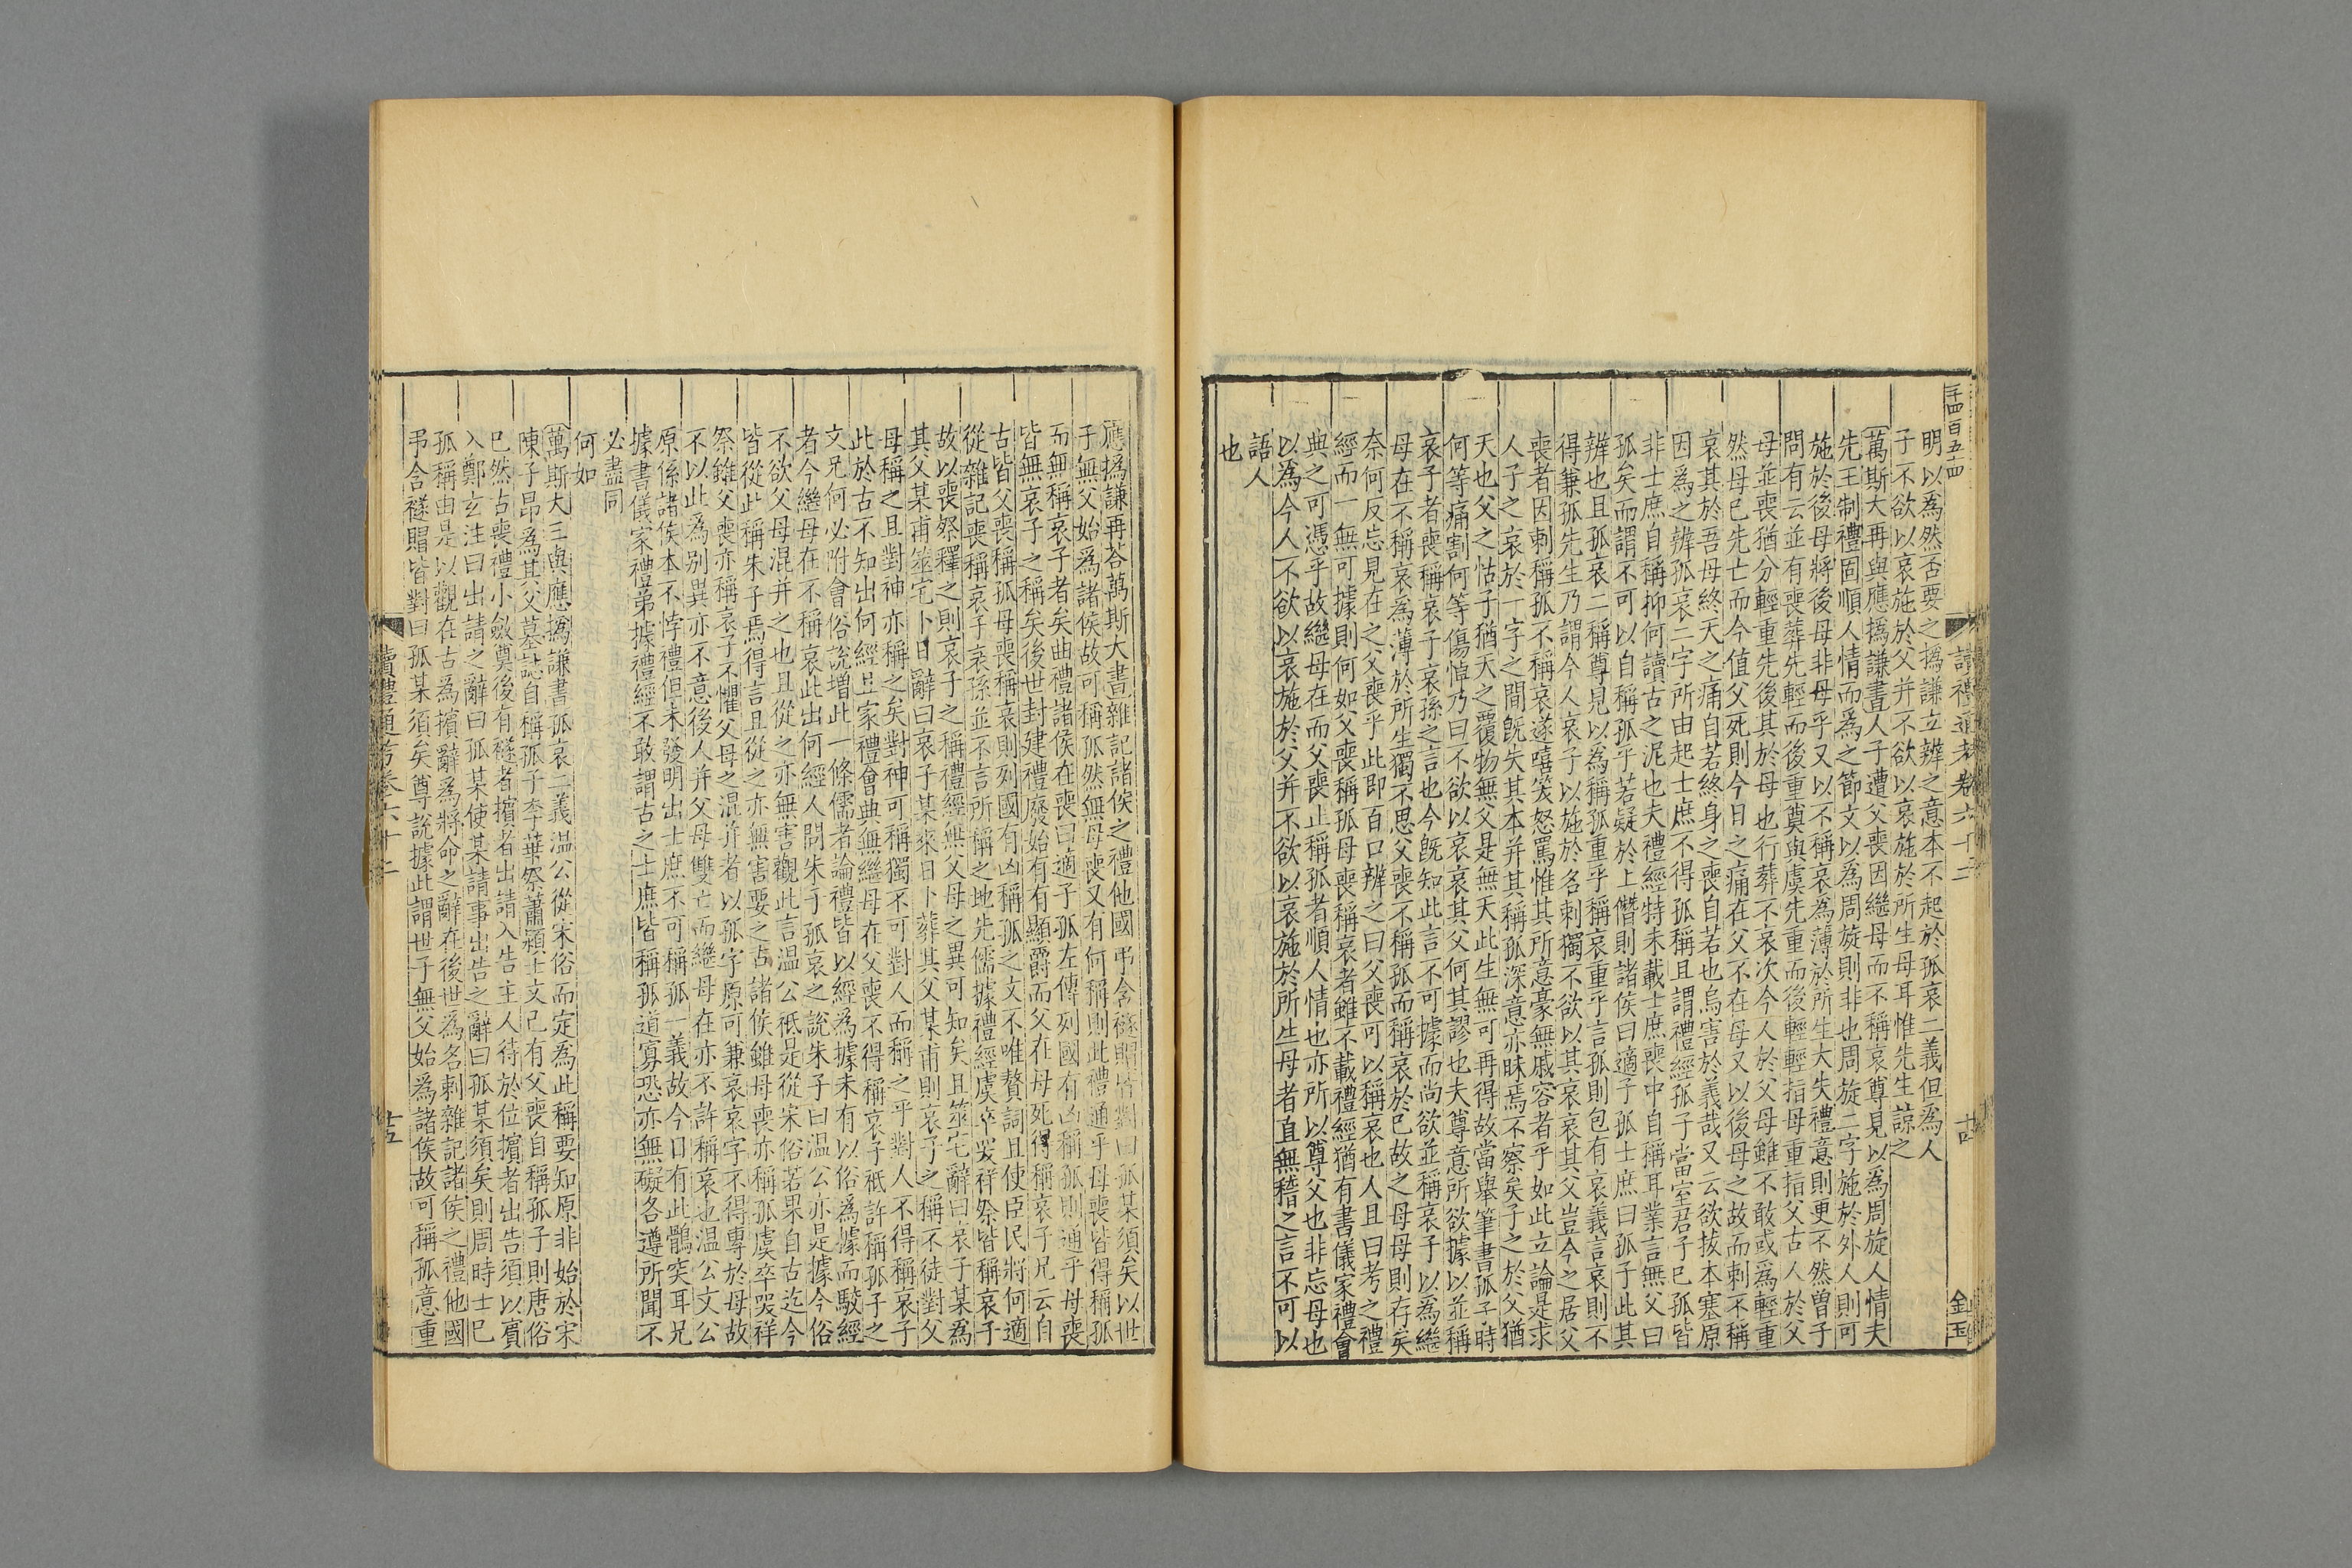 三千四百五十四
讀禮通考卷六十二
十四
金玉
明以為然否要之撝謙立辨之意本不起於孤哀二義但為人
子不欲以哀施於父并不欲以哀施於所生母耳惟先生諒之
萬斯大再與應撝謙書人子遭父喪因繼母而不稱哀尊見以為周旋人情夫
先王制禮固順人情而為之節文以為周旋則非也周旋二字施於外人則可
施於後母將後母非母乎又以不稱哀為薄於所生大失禮意則更不然曾子
問有云並有喪葬先輕而後重奠與虞先重而後輕輕指母重指父古人於父
母並喪猶分輕重先後其於母也行葬不哀次今人於父母雖不敢或為輕重
然母已先亡而今值父死則今日之痛在父不在母又以後母之故而刺不稱
哀其於吾母終天之痛自若終身之喪自若也烏害於義哉又云欲拔本塞原
因為之辨孤哀二字所由起士庶不得孤稱且謂禮經孤子當室君子已孤皆
非士庶自稱抑何讀古之泥也夫禮經特未載士庶喪中自稱耳業言無父曰
孤矣而謂不可以自稱孤乎若疑於上僭則諸侯曰適子孤士庶曰孤子此其
辨也且孤哀二稱尊見以為稱孤重乎稱哀重乎言孤則包有哀義言哀則不
得兼孤先生乃謂今人哀子以施於名刺獨不欲以其哀哀其父豈今之居父
喪者因刺稱孤不稱哀遂嘻笑怒罵惟其所意豪無戚容者乎如此立論是求
人子之哀於一字之間旣失其本并其稱孤深意亦昧焉不察矣子之於父猶
天也父之怙子猶天之覆物無父是無天此生無可再得故當舉筆書孤子時
何等痛割何等傷悼乃曰不欲以哀哀其父何其謬也夫尊意所欲據以並稱
哀子者喪稱哀子哀孫之言也今旣知此言不可據而尚欲並稱哀子以為繼
母在不稱哀為薄於所生獨不思父喪不稱孤而稱哀於已故之母母則存矣
奈何反忘見在之父喪乎此即百口辨之曰父喪可以稱哀也人且曰考之禮
經而一無可據則何如父喪稱孤母喪稱哀者雖不載禮經猶有書儀家禮會
典之可憑乎故繼母在而父喪止稱孤者順人情也亦所以尊父也非忘母也
以為今人不欲以哀施於父并不欲以哀施於所生母者直無稽之言不可以
語人
也
應撝謙再荅萬斯大書雜記諸侯之禮他國弔含襚賵皆對曰孤某須矣以世
子無父始為諸侯故可稱孤然無母喪又有何稱則此禮通乎母喪皆得稱孤
而無稱哀子者矣曲禮諸侯在喪曰適子孤左傳列國有凶稱孤則通乎母喪
皆無哀子之稱矣後世封建禮廢始有有顯爵而父在母死得稱哀子兄云自
古皆父喪稱孤母喪稱哀則列國有凶稱孤之文不唯贅詞且使臣民將何適
從雜記喪稱哀子哀孫並不言所稱之地先儒據禮經虞卒哭祥祭皆稱哀子
故以喪祭釋之則哀子之稱禮經無父母之異可知矣且筮宅辭曰哀子某為
其父某甫筮宅卜日辭曰哀子某來日卜葬其父某甫則哀子之稱不徒對父
母稱之且對神亦稱之矣對神可稱獨不可對人而稱之乎對人不得稱哀子
此於古不知出何經且家禮會典無繼母在父喪不得稱哀子祇許稱孤子之
文兄何必附會俗說增此一條儒者論禮皆以經為據未有以俗為據而駁經
者今繼母在不稱哀此出何經人問朱子孤哀之說朱子曰温公亦是據今俗
不欲父母混并之也且從之亦無害觀此言温公祇是從宋俗若果自古迄今
皆從此稱朱子焉得言且從之亦無害要之古諸侯雖母喪亦稱孤虞卒哭祥
祭雖父喪亦稱哀子不懼父母之混并者以孤字原可兼哀哀字不得專於母故
不以此為別異亦不意後人并父母雙亡而繼母在亦不許稱哀也温公文公
原係諸侯本不悖禮但未發明出士庶不可稱孤一義故今日有此鶻突耳兄
據書儀家禮弟據禮經不敢謂古之士庶皆稱孤道寡恐亦無礙各遵所聞不
必盡同
何如
萬斯大三與應撝謙書孤哀二義温公從宋俗而定為此稱要知原非始於宋
陳子昂為其父墓誌自稱孤子李華祭蕭潁士文己有父喪自稱孤子則唐俗
已然古喪禮小斂奠後有襚者擯者出請入告主人待於位擯者出告須以賓
入鄭玄注曰出請之辭曰孤某使某請事出告之辭曰孤某須矣則周時士已
孤稱由是以觀在古為擯辭為將命之辭在後世為名刺雜記諸侯之禮他國
弔含襚賵皆對曰孤某須矣尊說據此謂世子無父始為諸侯故可稱孤意重
讀禮通考卷六十二
十五